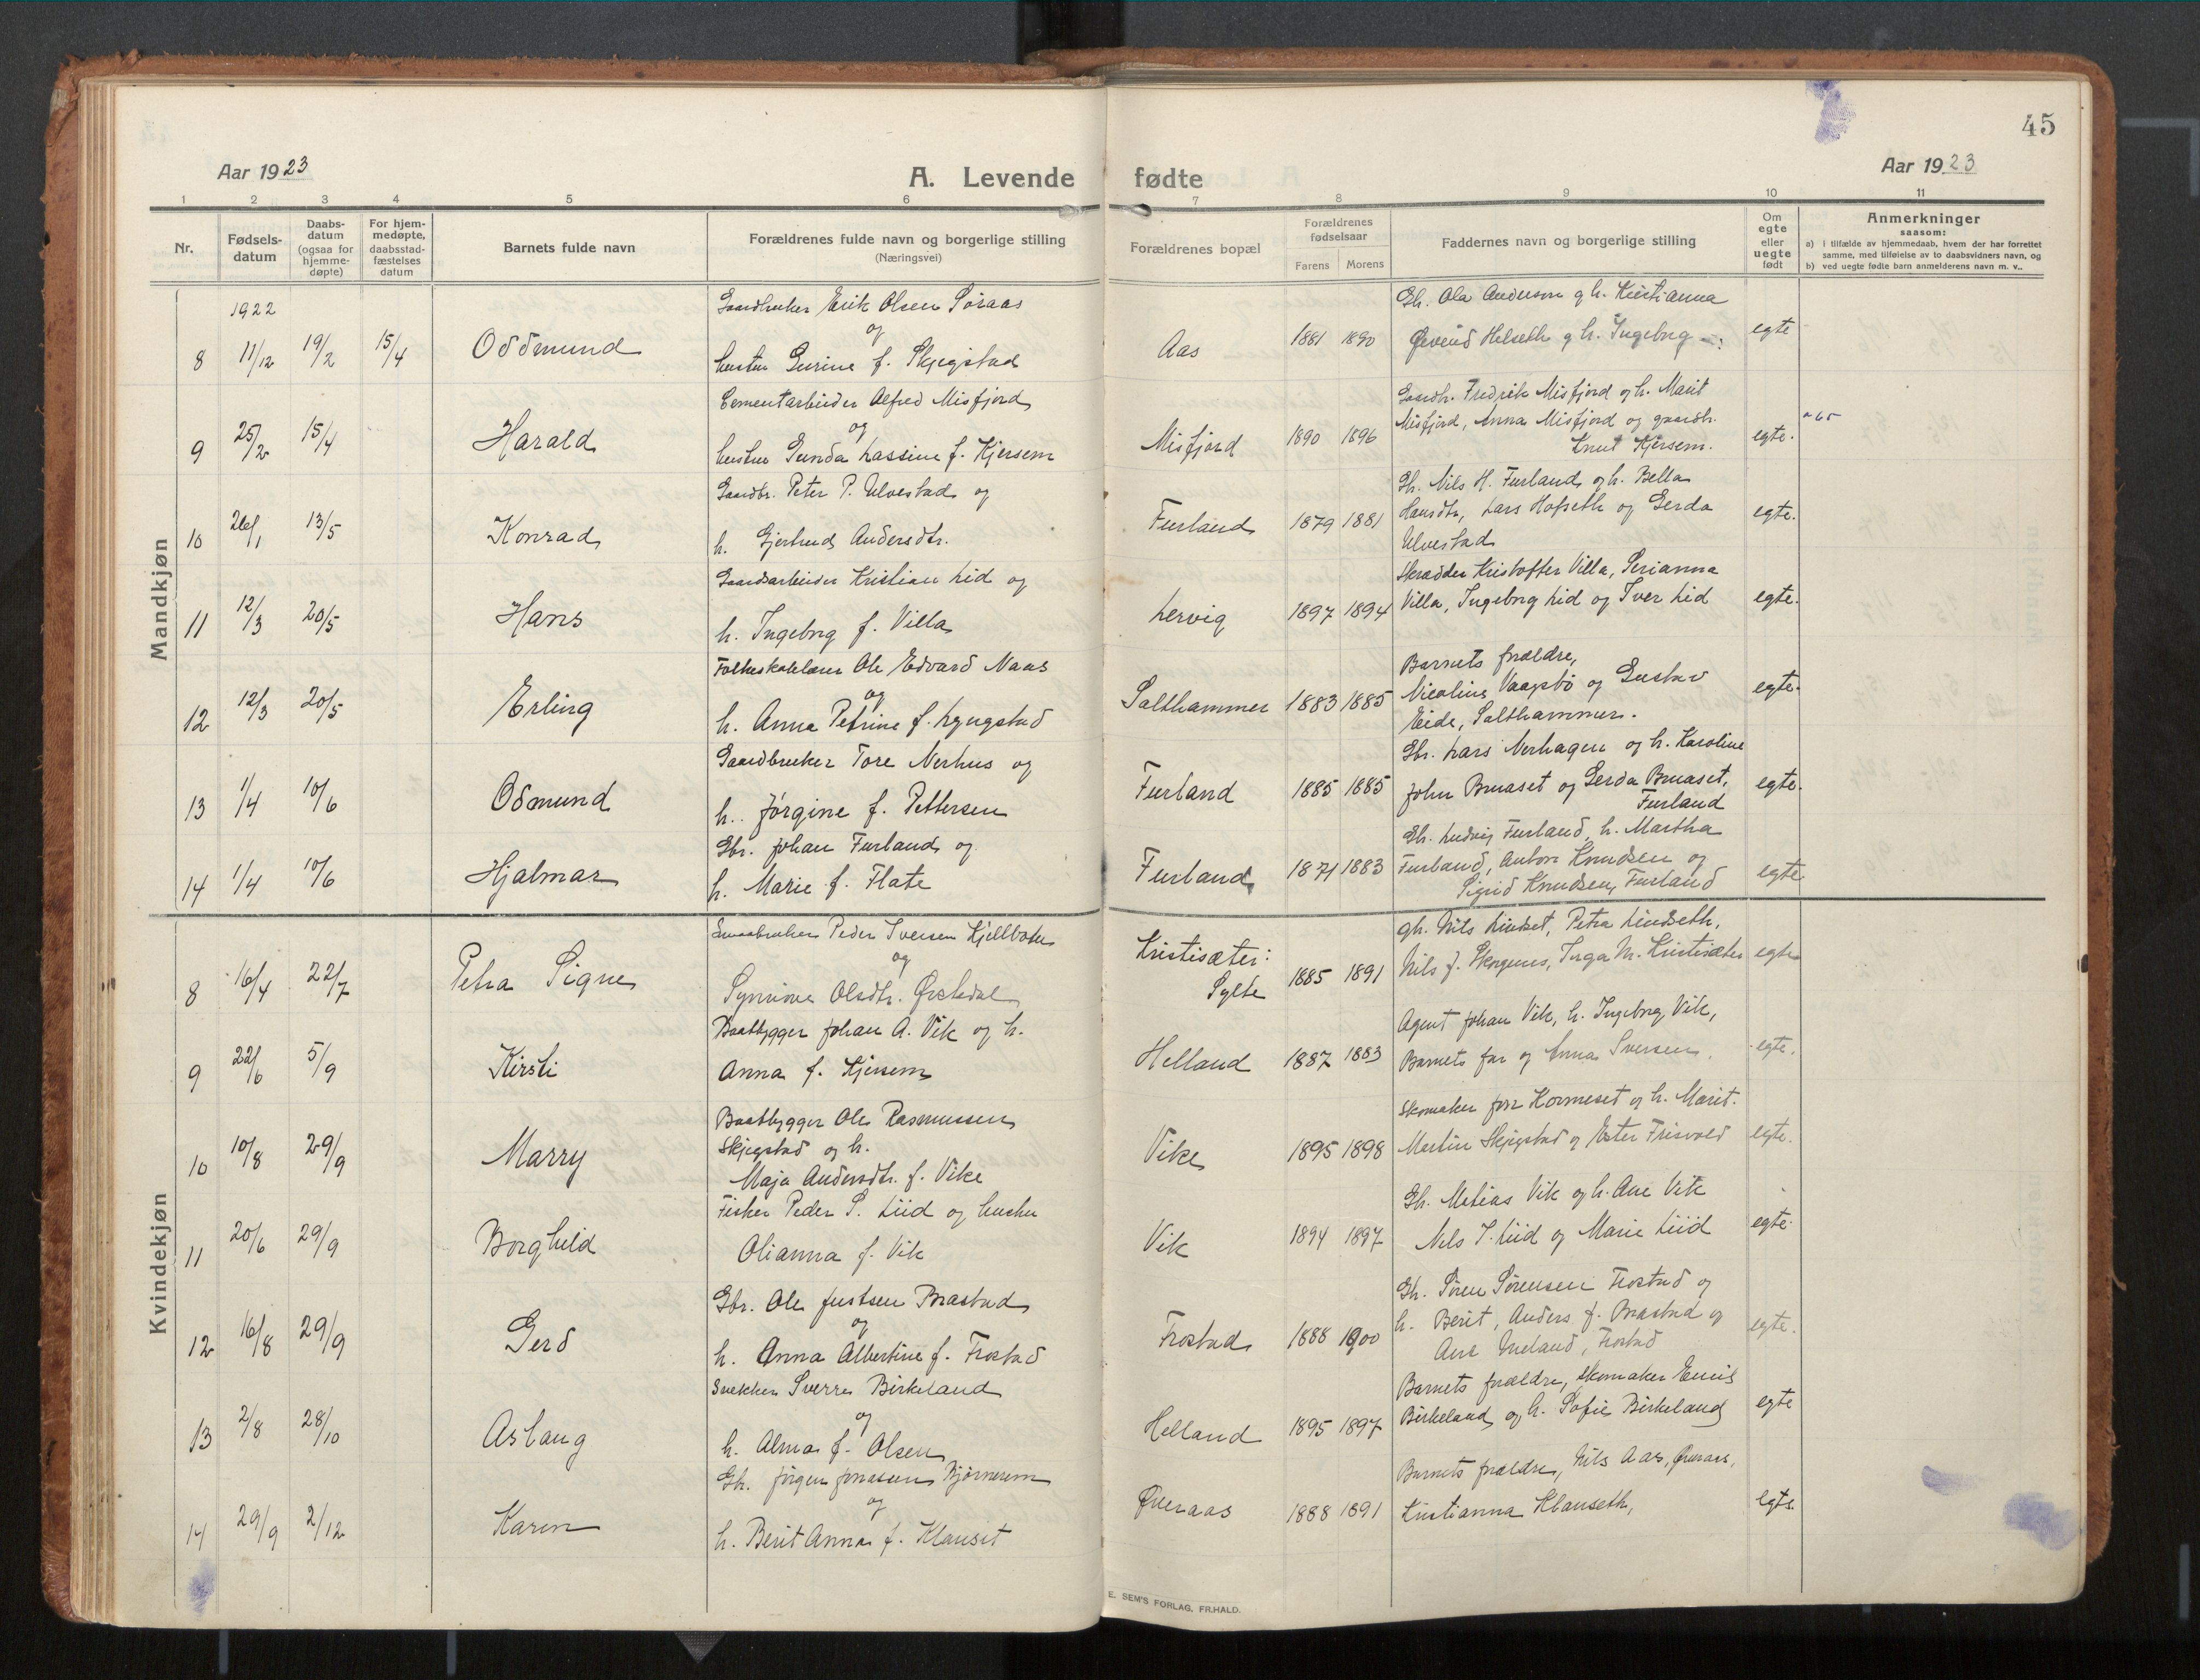 45
Aar 1923
A. Levende fødte
Aar 1923
1 2 3 4 5 6 7 8 9 10 11
Nr.
Fødsels-
datum
Daabs-
datum
(ogsaa for
hjemme-
døpte)
For hjem-
medøpte,
daabsstad-
fæstelses
datum
Barnets fulde navn
Forældrenes fulde navn og borgerlige stilling
(Næringsvei)
Forældrenes bopæl
Forældrenes
fødselsaar
Farens Morens
Faddernes navn og borgerlige stilling
Om
egte
eller
uegte
født
Anmerkninger
saasom:
a) i tilfælde av hjemmedaab, hvem der har forrettet
samme, med tilføielse av to daabsvidners navn, og
b) ved uegte fødte barn anmelderens navn m. v..
Mandkjøn
1922
8 11/12 19/2 15/4 Oddmund
Gaardbruker Erik Olsen Søraas
og
hustru Gurine f. Skjegstad
Aas 1881 1890
Gb. Ola Anderson og h. Kristianna
Øveind Helseth og h. Ingebrg
egte
9 25/2 15/4 Harald
Cementarbeider Alfred Misfjord
og
hustru Gunda Lassine f. Kjersem
Misfjord 1890 1896
Gaardb. Fredrik Misfjord og h. Marit
Misfjord, Anna Misfjord og gaardb.
Knut Kjersem.
egte.
10 26/1 13/5 Konrad
Gaardbr. Peter P. Ulvestad og
h. Gjertrud Andersdtr.
Furland 1879 1881
Gb. Nils H. Furland og h. Bella
Hansdtr, Lars Hofseth og Gerda
Ulvestad
egte.
11 12/3 20/5 Hans
Gaardsarbeider Kristian Lid og
h. Ingebrg f. Villa
Lervig 1897 1894
Skrædder Kristoffer Villa, Serianna
Villa, Ingebrg Lid og Iver Lid
egte.
12 12/3 20/5 Erling
Folkeskolelærer Ole Edvard Naas
og
h. Anna Petrine f. Lyngstad
Salthammer 1883 1885
Barnets forældre,
Nicoline Vaagsbø og Gustav
Eide, Salthammer.
egte.
13 1/4 10/6 Odmund
Gaardbruker Tore Nerhus og
h. Jørgine f. Pettersen
Furland 1885 1885
Gbr. Lars Nerhagen og h. Karoline
John Bruaset og Gerda Bruaset,
Furland
egte.
14 1/4 10/6 Hjalmar
Gbr. Johan Furland og
h. Marie f. Flate
Furland 1871 1883
Gb. Ludvig Furland, h. Martha
Furland, Anton Knudsen og
Sigrid Knudsen, Furland
egte
Kvindekjøn
8 16/4 22/7 Petra Signe
Smaabruker Peder Iversen Kjellbotn
og
Synnøve Olsdtr. Ørstedal
Kristisæter:
Sylte
1885 1891
gb. Nils Lindset, Petra Lindseth,
Nils J. Skorgenes, Inga M. Kristisæter
egte
9 22/6 5/9 Kirsti
Baatbygger Johan A. Vik og h.
Anna f. Kjersem
Helland 1887 1883
Agent Johan Vik, h. Ingebrg Vik,
Barnets far og Anna Iversen.
egte.
10 10/8 29/9 Marry
Baatbygger Ole Rasmussen
Skjegstad og h.
Maja Andersdtr. f. Vike
Vike 1895 1898
Skomaker Hormeset og h. Marit.
Martin Skjegstad og Ester Frisvold
egte.
11 20/6 29/9 Borghild
Fisker Peder S. Liid og hustru
Olianna f. Vik
Vik 1894 1897
Gb. Matias Vik og h. Ane Vik
Nels I. Liid og Marie Liid
egte.
12 16/8 29/9 Gerd
Gbr. Ole Justsen Brastad
og
h. Anna Albertine f. Frostad
Frostad 1888 1900
Gb. Søren Sørensen Frostad og
h. Berit, Anders J. Brastad og
Ane Meland, Frostad
egte.
13 2/8 28/10 Aslaug
Snekker Sverre Birkeland
og
h. Alma f. Olsen
Helland 1895 1897
Barnets forældre, skomaker
Birkeland og h. Sofie Birkeland
egte
14 29/9 2/12 Karen
Gb. Jørgen Jonassen Bjørnerem
og
h. Berit Anna f. Klauset
Øveraas 1888 1891
Barnets forældre, Nils Aas, Øveraas,
Kristianna Klauseth,
egte
E. SEM'S FORLAG, FR.HALD.